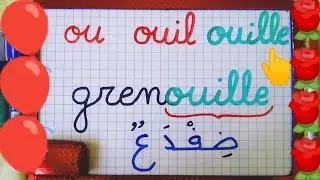 ou ouil ouille
grenouille
ضِفْدَعٌ